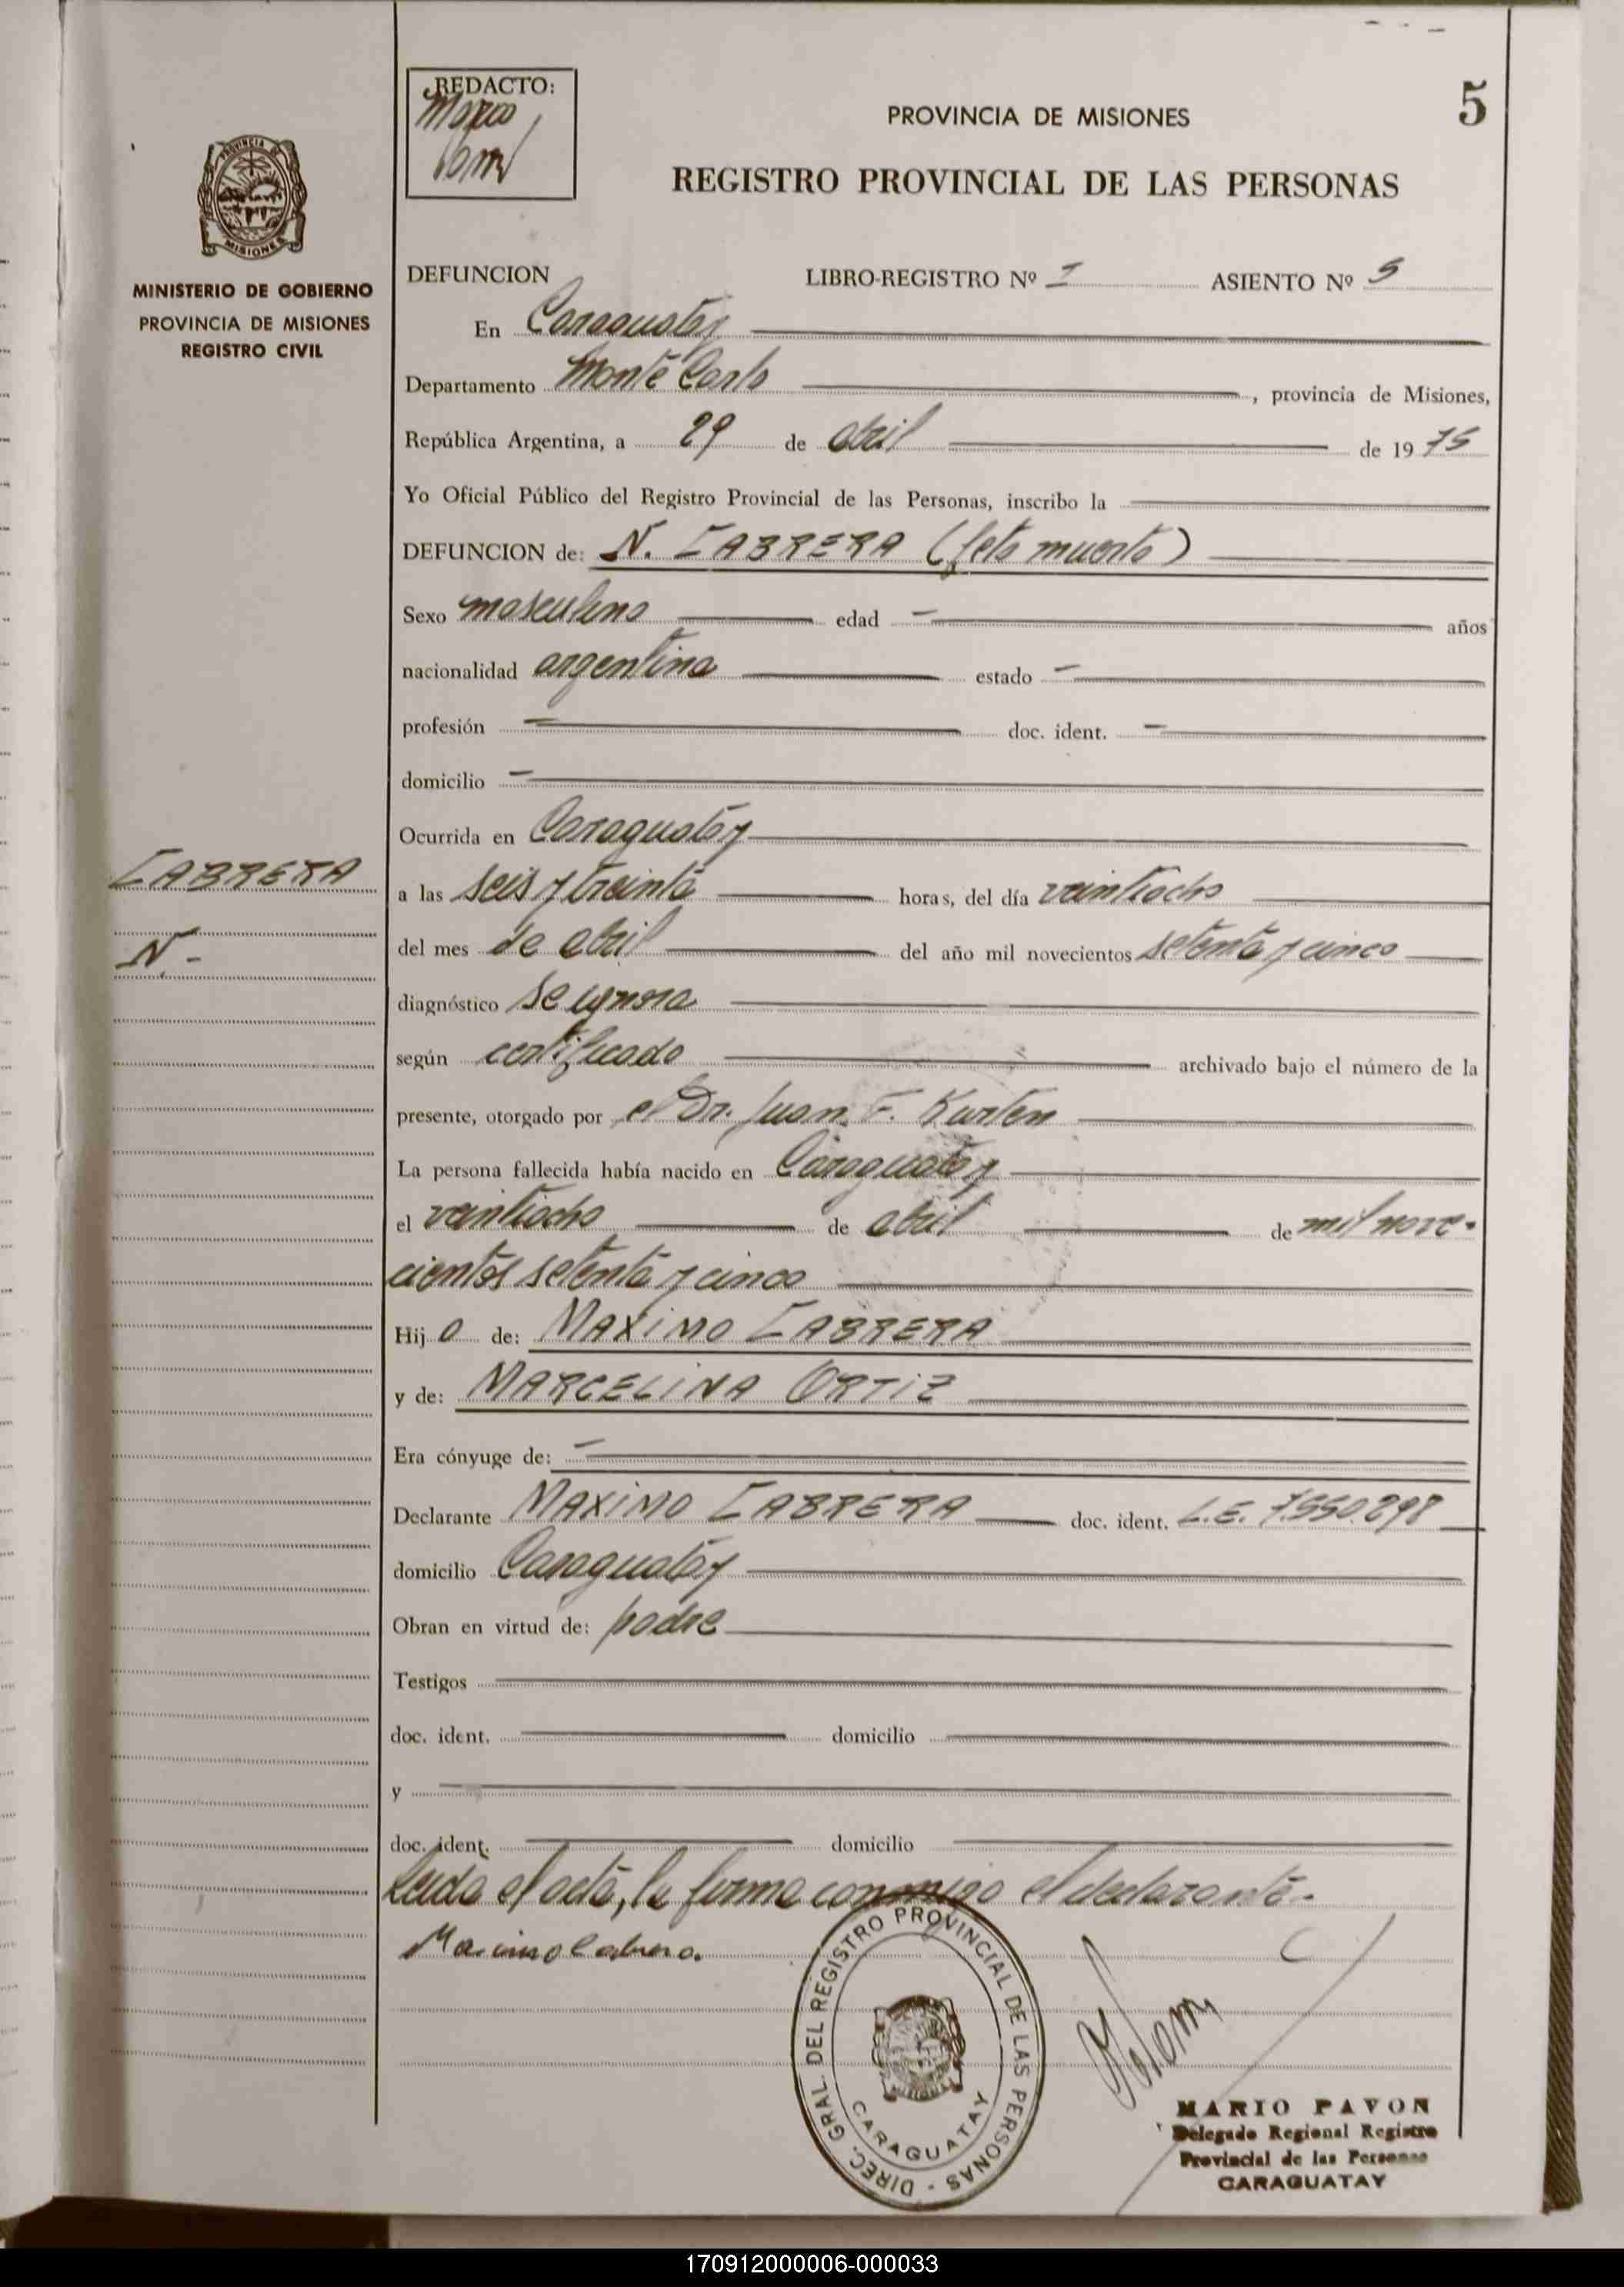 REDACTO:
PROVINCIA DE MISIONES
5
REGISTRO PROVINCIAL DE LAS PERSONAS
PROVINCIA DE
MISIONES
MINISTERIO DE GOBIERNO
PROVINCIA DE MISIONES
REGISTRO CIVIL
DEFUNCION LIBRO-REGISTRO Nº I ASIENTO Nº 5
En Caraguatay
Departamento Monte Carlo, provincia de Misiones,
República Argentina, a 29 de abril de 1975
Yo Oficial Público del Registro Provincial de las Personas, inscribo la
DEFUNCION de: N. CABRERA (feto muerto)
Sexo masculino edad - años
nacionalidad argentina estado -
profesión - doc. ident. -
domicilio -
Ocurrida en Caraguatay
CABRERA
N -
a las seis y treinta horas, del día veintiocho
del mes de abril del año mil novecientos setenta y cinco
diagnóstico se ignora
según certificado archivado bajo el número de la
presente, otorgado por el Dr. Juan F. Kurten
La persona fallecida había nacido en Caraguatay
el veintiocho de abril de mil nove-
cientos setenta y cinco
Hijo de: MAXIMO CABRERA
y de: MARCELINA ORTIZ
Era cónyuge de: -
Declarante MAXIMO CABRERA doc. ident. L.E. 7.550.298
domicilio Caraguatay
Obran en virtud de: padre
Testigos
doc. ident. domicilio
y
doc. ident. domicilio
Leida el acta, la firma conmigo el declarante.
Maximo Cabrera.
DIREC. GRAL. DEL REGISTRO PROVINCIAL DE LAS PERSONAS -
CARAGUATAY
MARIO PAVON
Delegado Regional Registro
Provincial de las Personas
CARAGUATAY
170912000006-000033